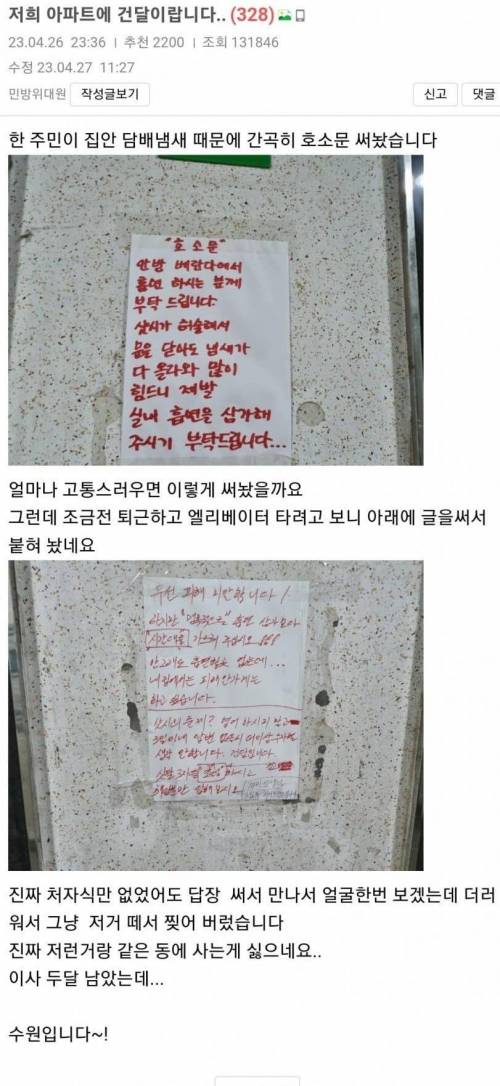 저희 아파트에 건달이랍니다.. (328)
23.04.26 23:36 | 추천 2200 | 조회 131846
수정 23.04.27 11:27
민방위대원 작성글보기 신고 댓글
한 주민이 집안 담배냄새 때문에 간곡히 호소문 써놨습니다
"호소문"
안방 베란다에서
흡연 하시는 분께
부탁 드립니다
샷시가 허술해서
문을 닫아도 냄새가
다 올라와 많이
힘드니 제발
실내 흡연을 삼가해
주시기 부탁드립니다...
얼마나 고통스러우면 이렇게 써놨을까요
그런데 조금전 퇴근하고 엘리베이터 타려고 보니 아래에 글을써서
붙혀 놨네요
우선 피해 미안합니다
하지만 흡연
시간대를
하고 있습니다.
샷시의 문제?
건달입니다
진짜 처자식만 없었어도 답장 써서 만나서 얼굴한번 보겠는데 더러
워서 그냥 저거 떼서 찢어 버렀습니다
진짜 저런거랑 같은 동에 사는게 싫으네요..
이사 두달 남았는데...
수원입니다~!